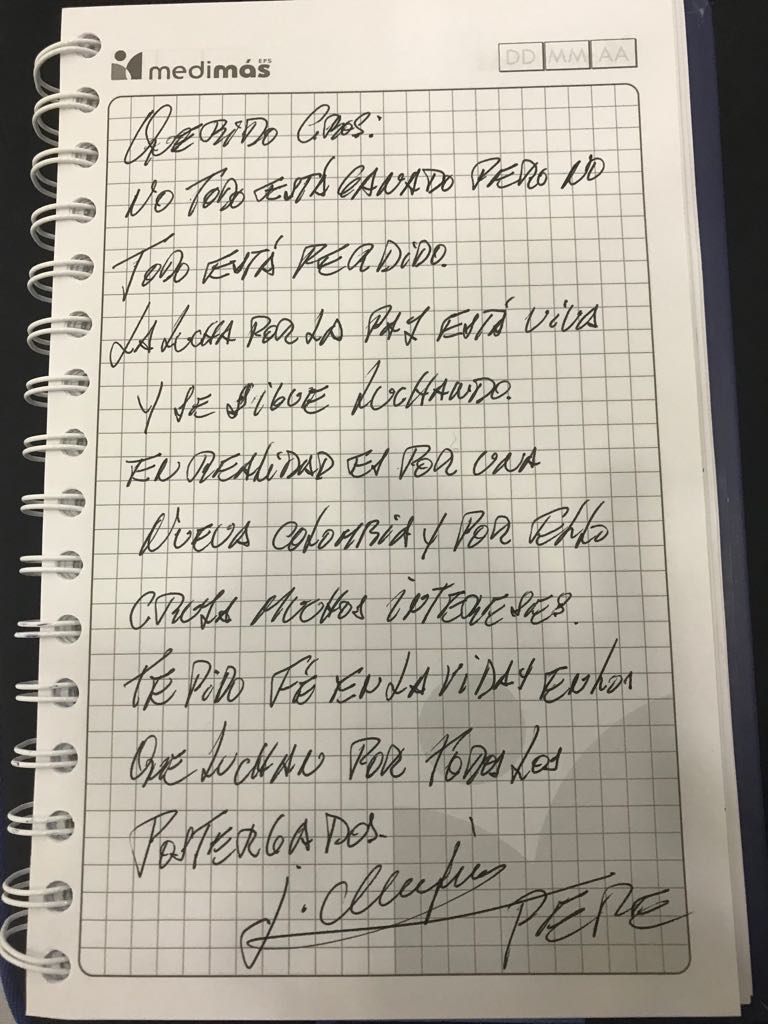 medimás EPS
DD MM AA
QUERIDO CROS:
NO TODO ESTÁ GANADO PERO NO
TODO ESTÁ PERDIDO.
LA LUCHA POR LA PAZ ESTÁ VIVA
Y SE SIGUE LUCHANDO.
EN REALIDAD ES POR UNA
NUEVA COLOMBIA Y POR ELLO
CRUZA MUCHOS INTERESES.
TE PIDO FÉ EN LA VIDA Y EN LOS
QUE LUCHAN POR TODOS LOS
POSTERGADOS.
J.
PEPE